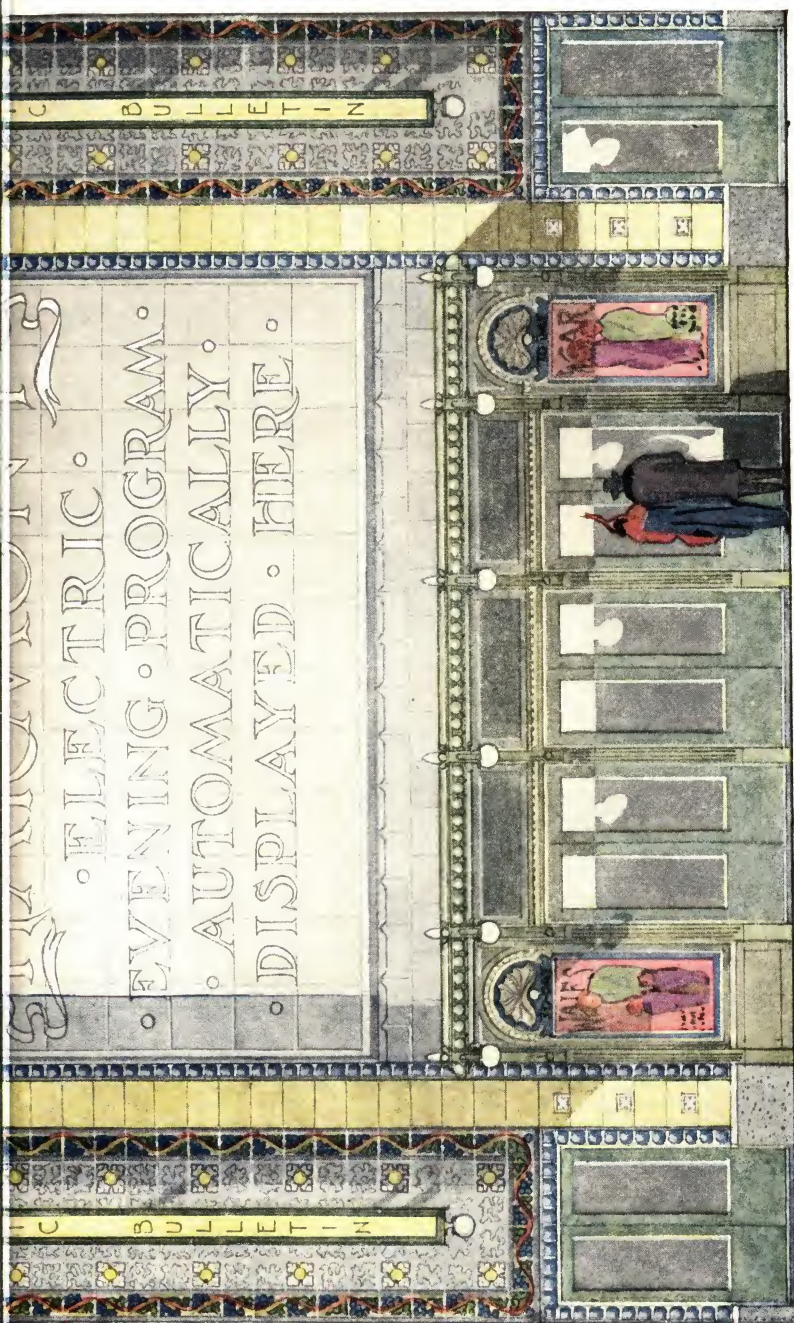 · ELECTRIC ·
· EVENING · PROGRAM ·
· AUTOMATICALLY ·
· DISPLAYED · HERE ·
C BULLETIN
C BULLETIN